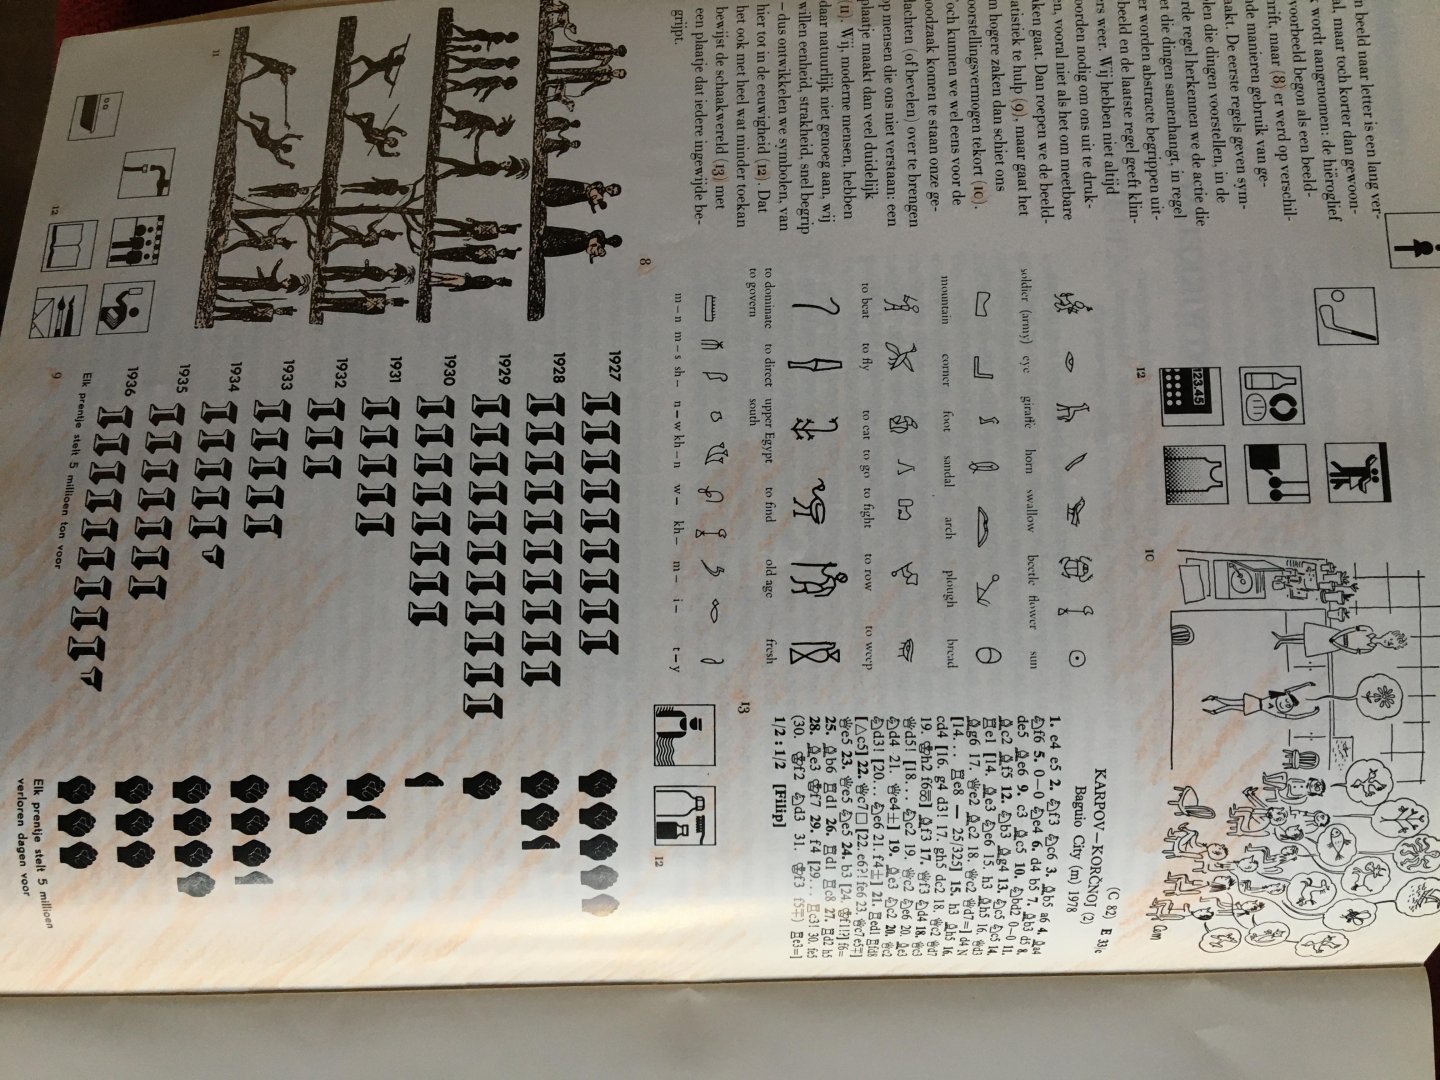 n beeld naar letter is een lang ver-
al, maar toch korter dan gewoon-
wordt aangenomen: de hiëroglief
voorbeeld begon als een beeld-
hrift, maar (8) er werd op verschil-
nde manieren gebruik van ge-
akt. De eerste regels geven sym-
olen die dingen voorstellen, in de
rde regel herkennen we de actie die
et die dingen samenhangt, in regel
er worden abstracte begrippen uit-
beeld en de laatste regel geeft klin-
ers weer. Wij hebben niet altijd
oorden nodig om ons uit te druk-
en, vooral niet als het om meetbare
aken gaat. Dan roepen we de beeld-
atistiek te hulp (9), maar gaat het
m hogere zaken dan schiet ons
oorstellingsvermogen tekort (10).
och kunnen we wel eens voor de
oodzaak komen te staan onze ge-
dachten (of bevelen) over te brengen
op mensen die ons niet verstaan: een
plaatje maakt dan veel duidelijk
(11). Wij, moderne mensen, hebben
daar natuurlijk niet genoeg aan, wij
willen eenheid, strakheid, snel begrip
– dus ontwikkelen we symbolen, van
hier tot in de eeuwigheid (12). Dat
het ook met heel wat minder toekan
bewijst de schaakwereld (13) met
een plaatje dat iedere ingewijde be-
grijpt.
11
12
12
123.45
10
soldier (army) eye giraffe horn swallow beetle flower sun
mountain corner foot sandal arch plough bread
to beat to fly to eat to go to fight to row to weep
to dominate to direct upper Egypt to find old age fresh
to govern south
m–n m–s sh– n–w kh–n w– kh– m– i– t–y
8
KARPOV—KORČNOJ (2)
Baguio City (m) 1978
(C 82) E 33/c
1. e4 e5 2. ♘f3 ♘c6 3. ♗b5 a6 4. ♗a4
♘f6 5. 0—0 ♘e4 6. d4 b5 7. ♗b3 d5 8.
de5 ♗e6 9. c3 ♗c5 10. ♘bd2 0—0 11.
♗c2 ♗f5 12. ♘b3 ♗g4 13. ♘c5 ♘c5 14.
♖e1 [14. ♗e3 ♘e6 15. h3 ♗h5 16. ♕d3
♗g6 17. ♕e2 ♗c2 18. ♕c2 ♕d7=] d4 N
[14... ♖e8 — 25/325] 15. h3 ♗h5 16.
cd4 [16. g4 d3! 17. gh5 dc2 18. ♕c2 ♕d7
1/2 : 1/2 [Filip]
13
12
1927
1928
1929
1930
1931
1932
1933
1934
1935
1936
Elk prentje stelt 5 millioen ton voor
9
Elk prentje stelt 5 millioen
verloren dagen voor